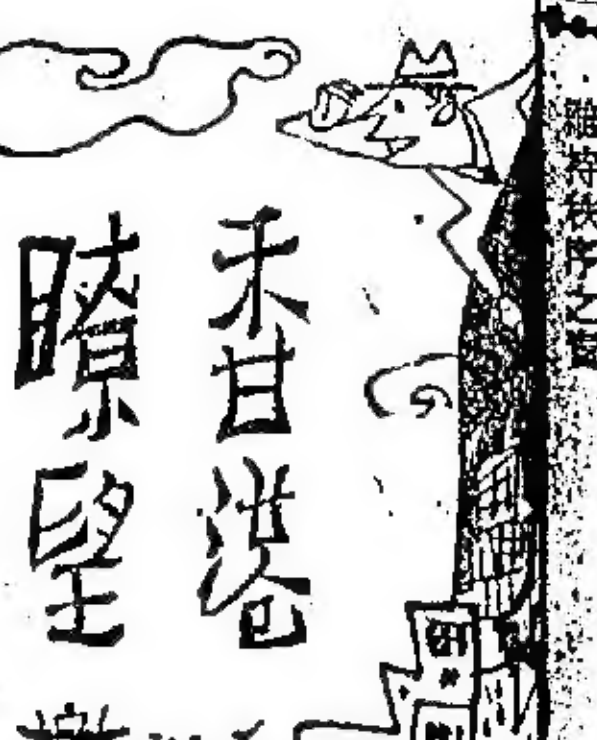 香港
瞭望
維持秩序之